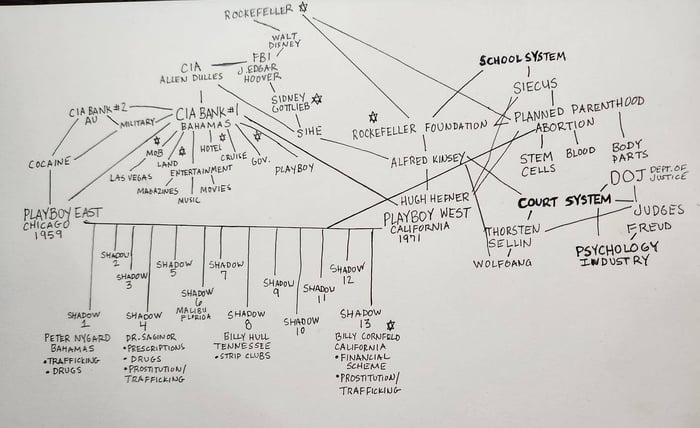 ROCKEFELLER
WALT
DISNEY
CIA
ALLEN DULLES
FBI
J. EDGAR
HOOVER
SIDNEY
GOTTLIEB
SIHE
SCHOOL SYSTEM
SIECUS
PLANNED PARENTHOOD
ABORTION
ROCKEFELLER FOUNDATION
STEM
CELLS
BLOOD
BODY
PARTS
CIA BANK #2
AU
MILITARY
CIA BANK #1
BAHAMAS
COCAINE
LAS VEGAS
MOB
LAND
HOTEL
CRUISE
GOV.
PLAYBOY
ENTERTAINMENT
MAGAZINES
MUSIC
MOVIES
ALFRED KINSEY
HUGH HEFNER
PLAYBOY WEST
CALIFORNIA
1971
DOJ DEPT. OF
JUSTICE
COURT SYSTEM
JUDGES
THORSTEN
SELLIN
WOLFGANG
FREUD
PSYCHOLOGY
INDUSTRY
PLAYBOY EAST
CHICAGO
1959
SHADOW
1
PETER NYGARD
BAHAMAS
•TRAFFICKING
•DRUGS
SHADOW
2
SHADOW
3
SHADOW
4
DR. SAGINOR
•PRESCRIPTIONS
•DRUGS
•PROSTITUTION/
TRAFFICKING
SHADOW
5
SHADOW
6
MALIBU
FLORIDA
SHADOW
7
SHADOW
8
BILLY HULL
TENNESSEE
•STRIP CLUBS
SHADOW
9
SHADOW
10
SHADOW
11
SHADOW
12
SHADOW
13
BILLY CORNFELD
CALIFORNIA
•FINANCIAL
SCHEME
•PROSTITUTION/
TRAFFICKING